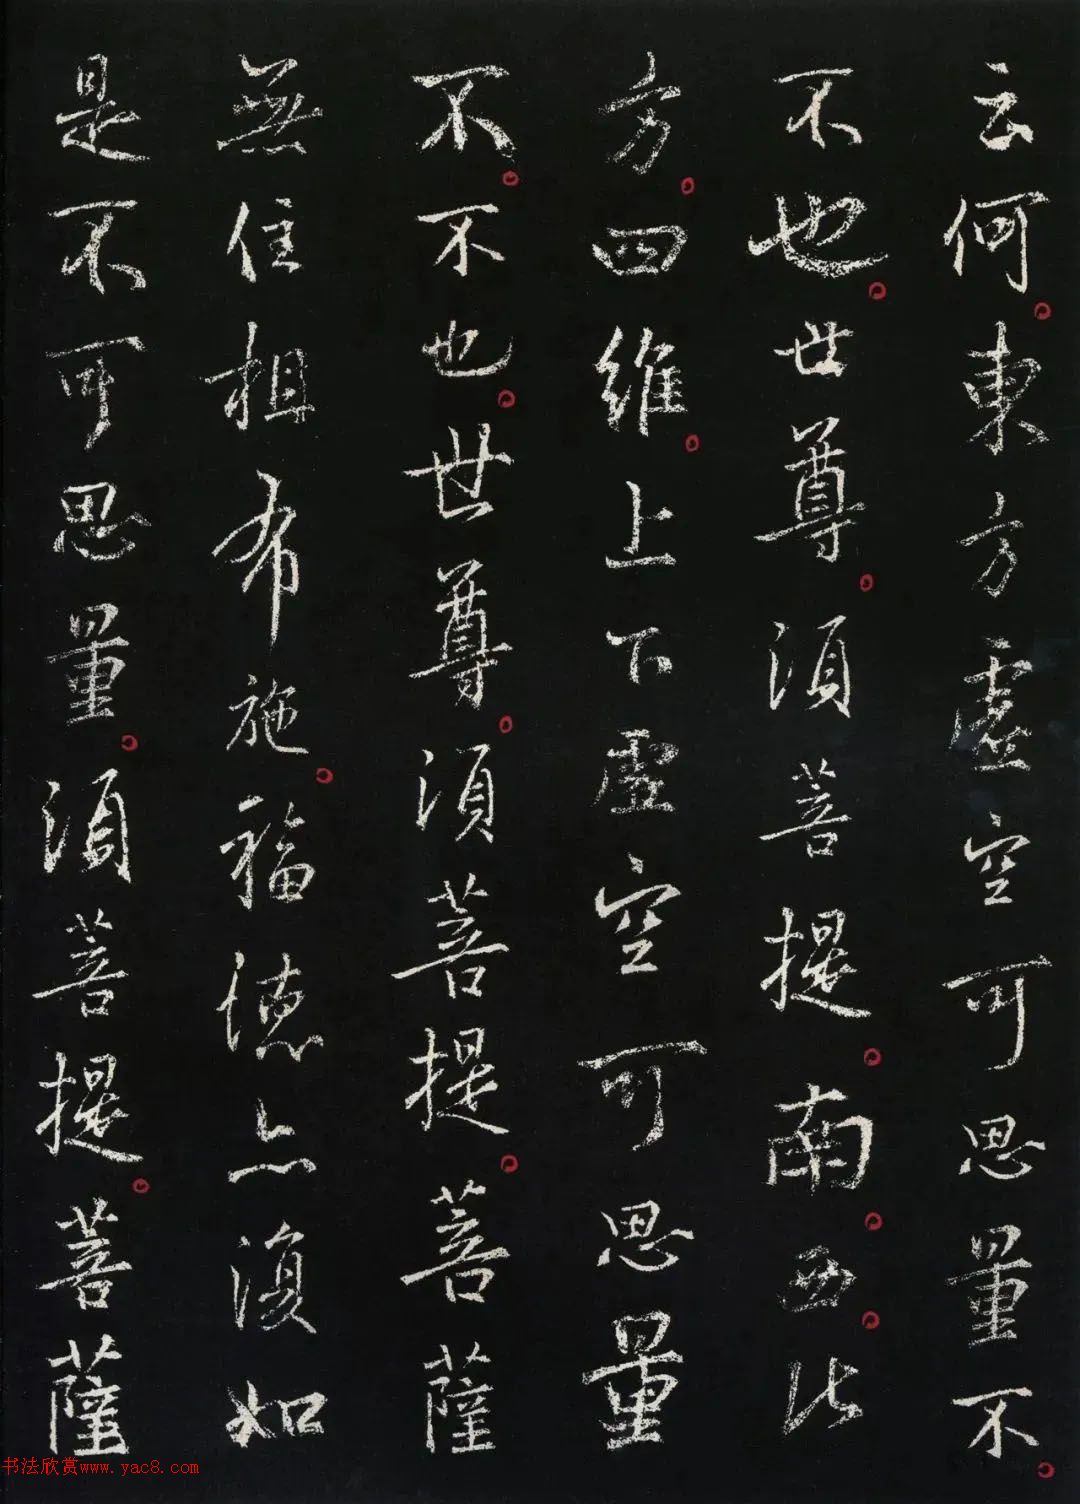 云何東方虛空可思量不
不也世尊須菩提南西北
方四維上下虛空可思量
不不也世尊須菩提菩薩
無住相布施福德亦復如
是不可思量須菩提菩薩
书法欣赏www.yac8.com